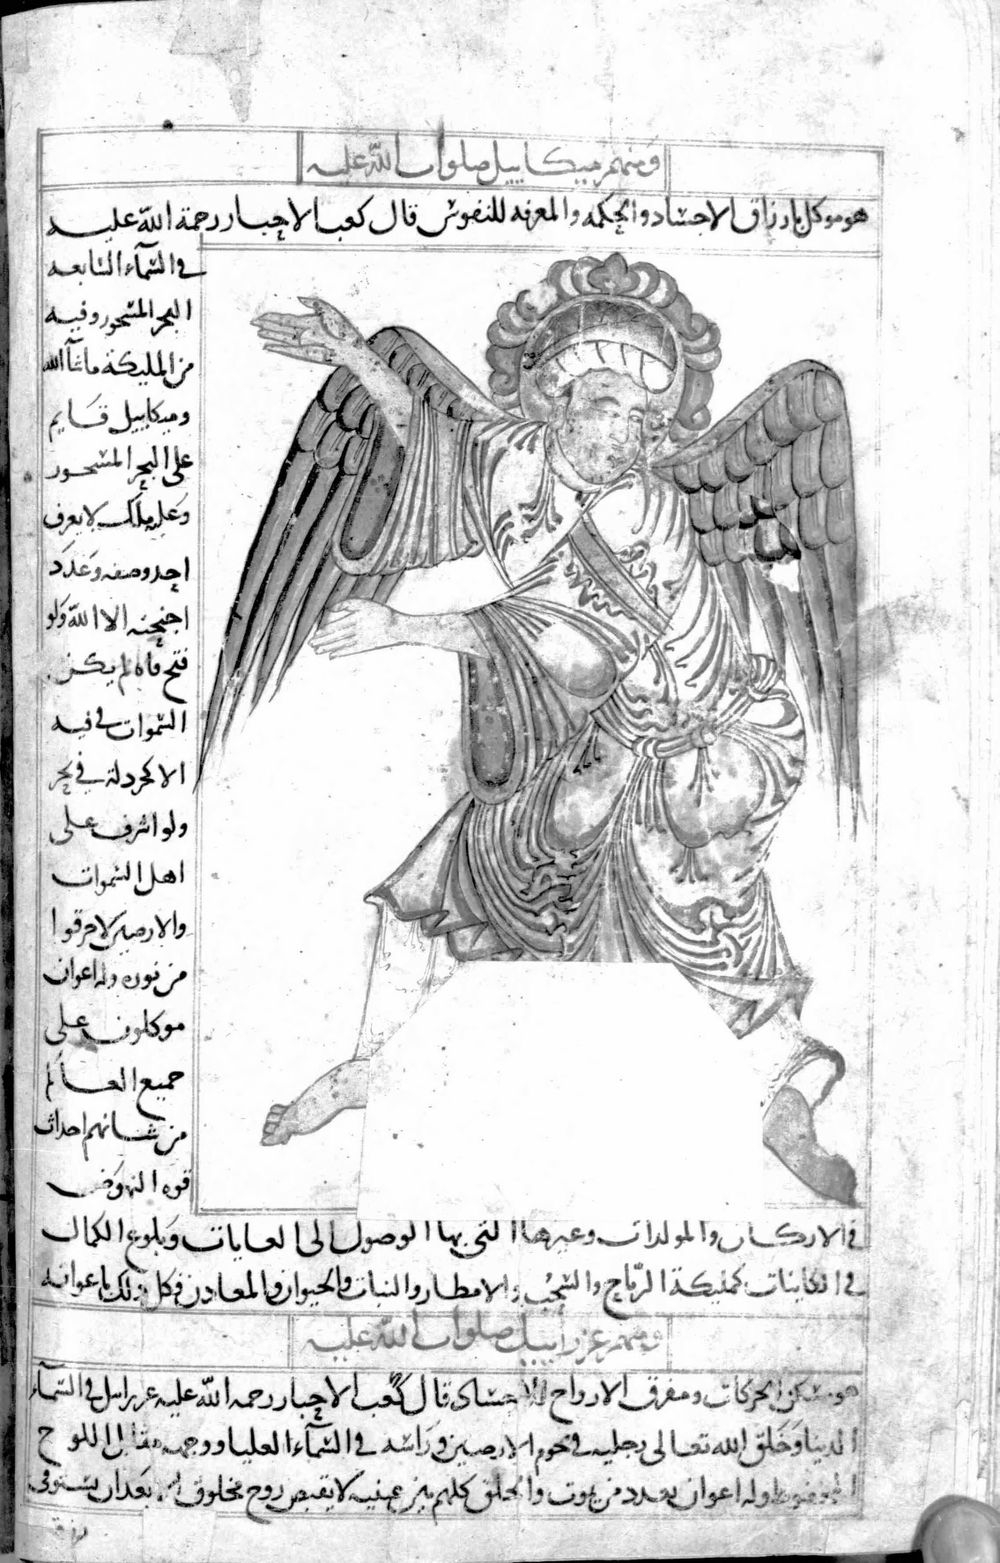 ومنهم ميكاييل صلوات الله عليه
هو موكل بارزاق الاجساد والحكمه والمعرفه للنفوس قال كعب الاحبار رحمة الله عليه
في السمآء السابعه
البحر المسجور وفيه
من المليكة ماشآ الله
وميكاييل قايم
على البحر المسجور
وعليه ملك لا يعرف
احد وصفه وعدد
اجنحته الا الله ولو
فتح فاه لم يكن
السموات في فيه
الا كخردلة في بحر
ولو اشرف على
اهل السموات
والارضين لاحرقوا
من نوره وله اعوان
موكلون على
جميع العالم
من شانهم احداث
قوة النهوض
في الاركان والمولدات وغيرها التي بها الوصول الى الغايات وبلوغ الكمال
في الكاينات كمليكة الرياح والسحب والامطار والنبات والحيوان والمعادن وكل ذلك باعوانه
ومنهم عزراييل صلوات الله عليه
هو مسكن الحركات ومفرق الارواح للاجساد قال كعب الاحبار رحمه الله عليه عزراييل في السمآء
الدنيا وخلق الله تعالى رجليه في تخوم الارضين وراسه في السمآء العليا ووجهه مقابل اللوح
المحفوظ وله اعوان بعدد من يموت والخلق كلهم بين عينيه لا يقبض روح مخلوق الا بعد ان يستوفي